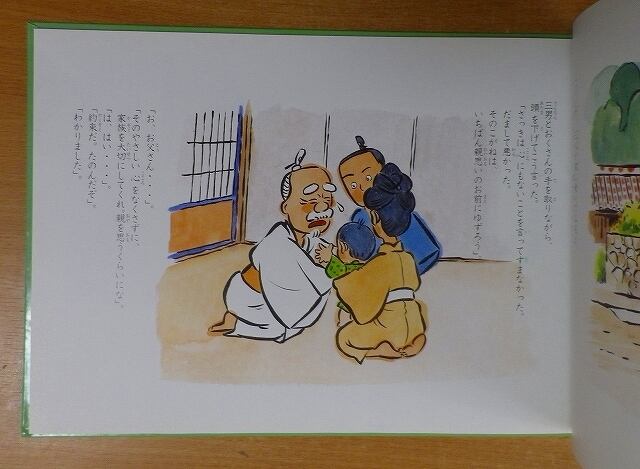 三男とおくさんの手を取りながら、
頭を下げてこう言った。
「さっきは、心にもないことを言ってすまなかった。
だまして悪かった。
そのこがねは、
いちばん親思いのお前にゆずろう」
「お、お父さん・・・」。
「そのやさしい心をなくさずに、
家族を大切にしてくれ、親を思うくらいにな」。
「は、はい・・・」。
「約束だ。たのんだぞ」。
「わかりました」。